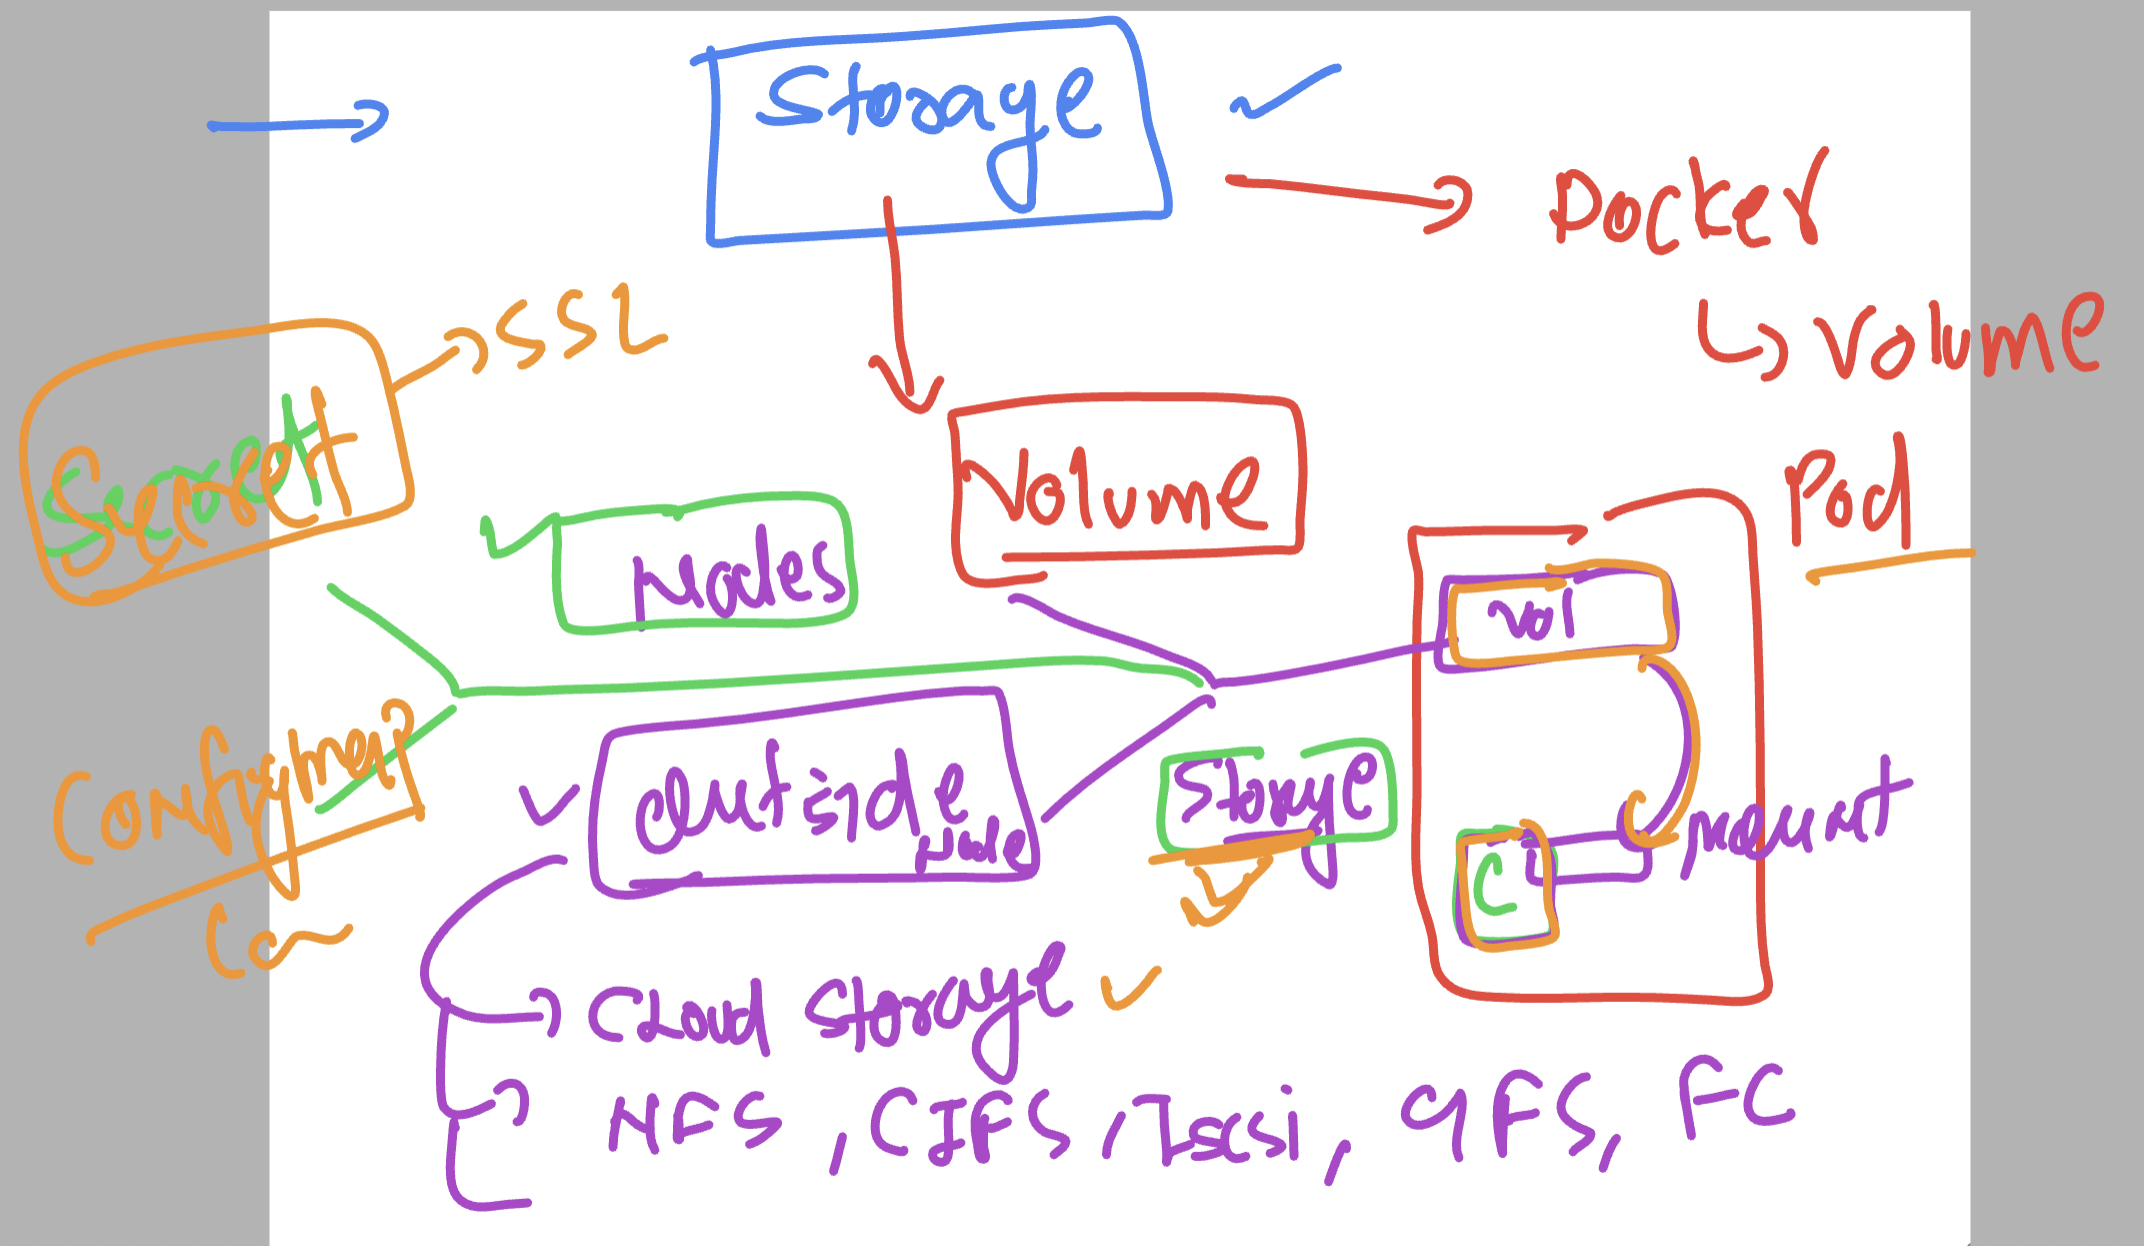 Storage
Docker
Volume
SSL
Secret
Volume
Pod
Nodes
Vol
Configmap
Outside
Node
Storage
mount
C
Cloud Storage
NFS, CIFS, Iscsi, GFS, FC